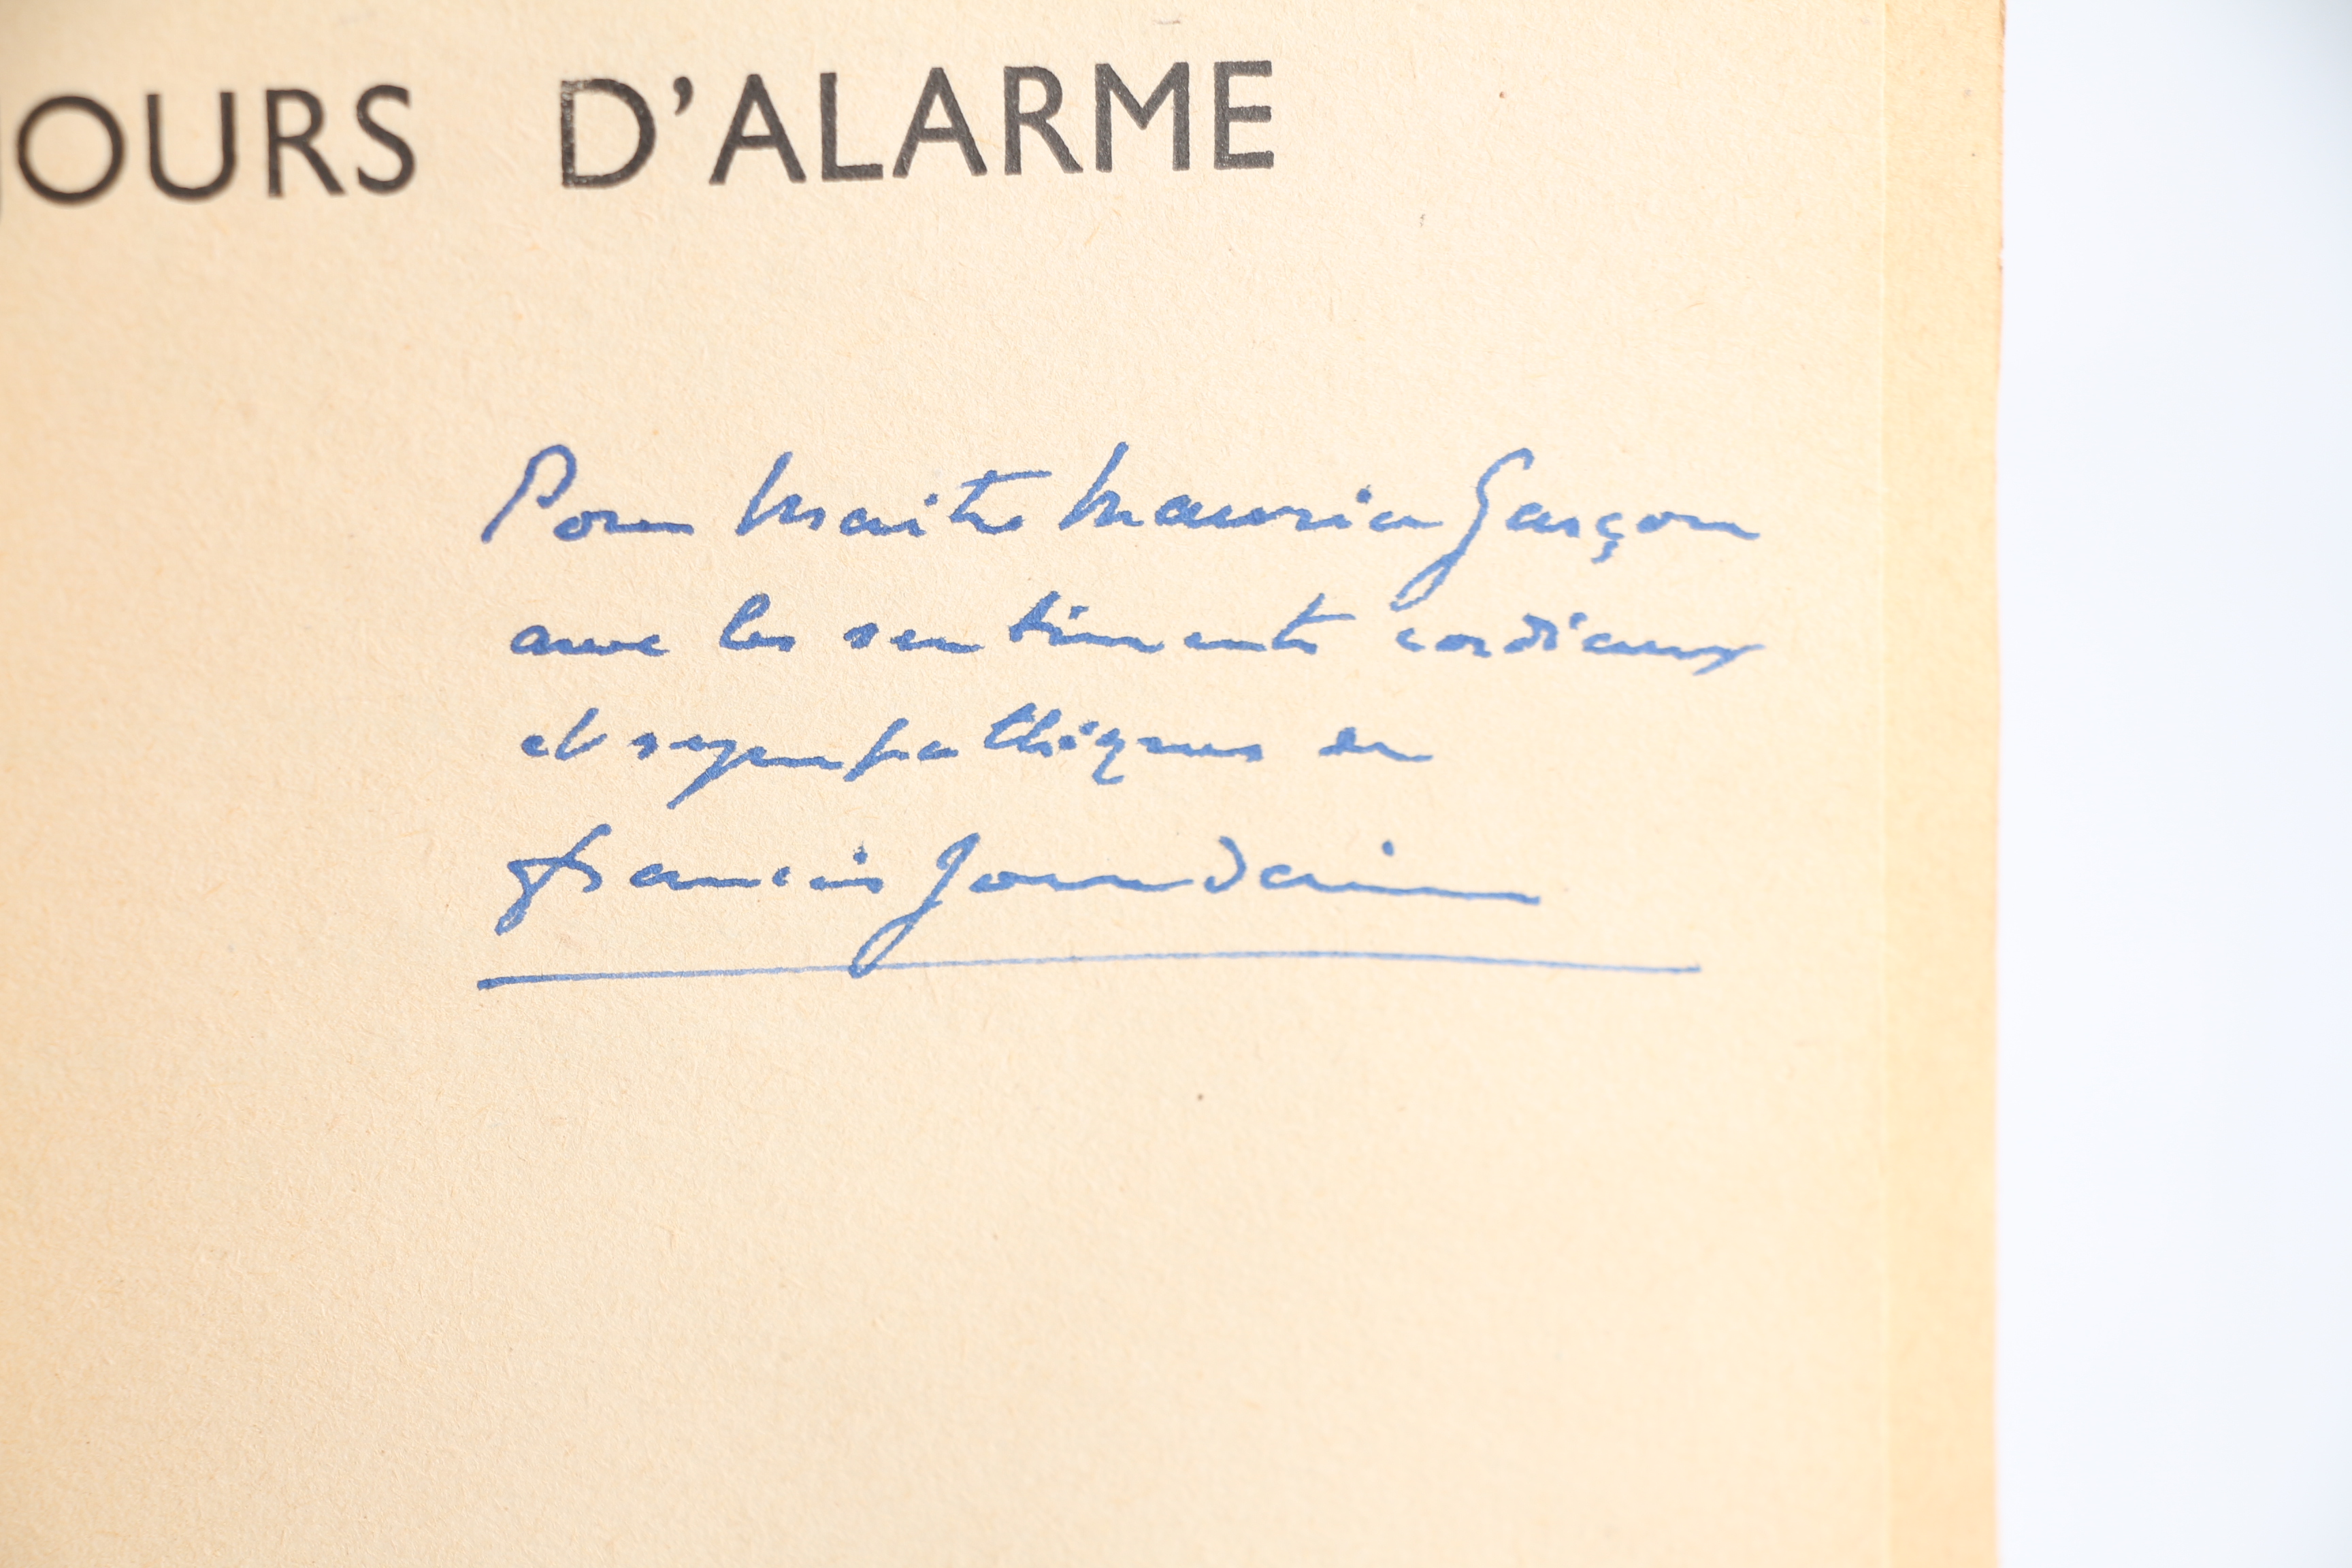 JOURS D'ALARME
Pour Maître Maurice Garçon
avec les sentiments cordiaux
et sympathiques de
Francis Jourdain